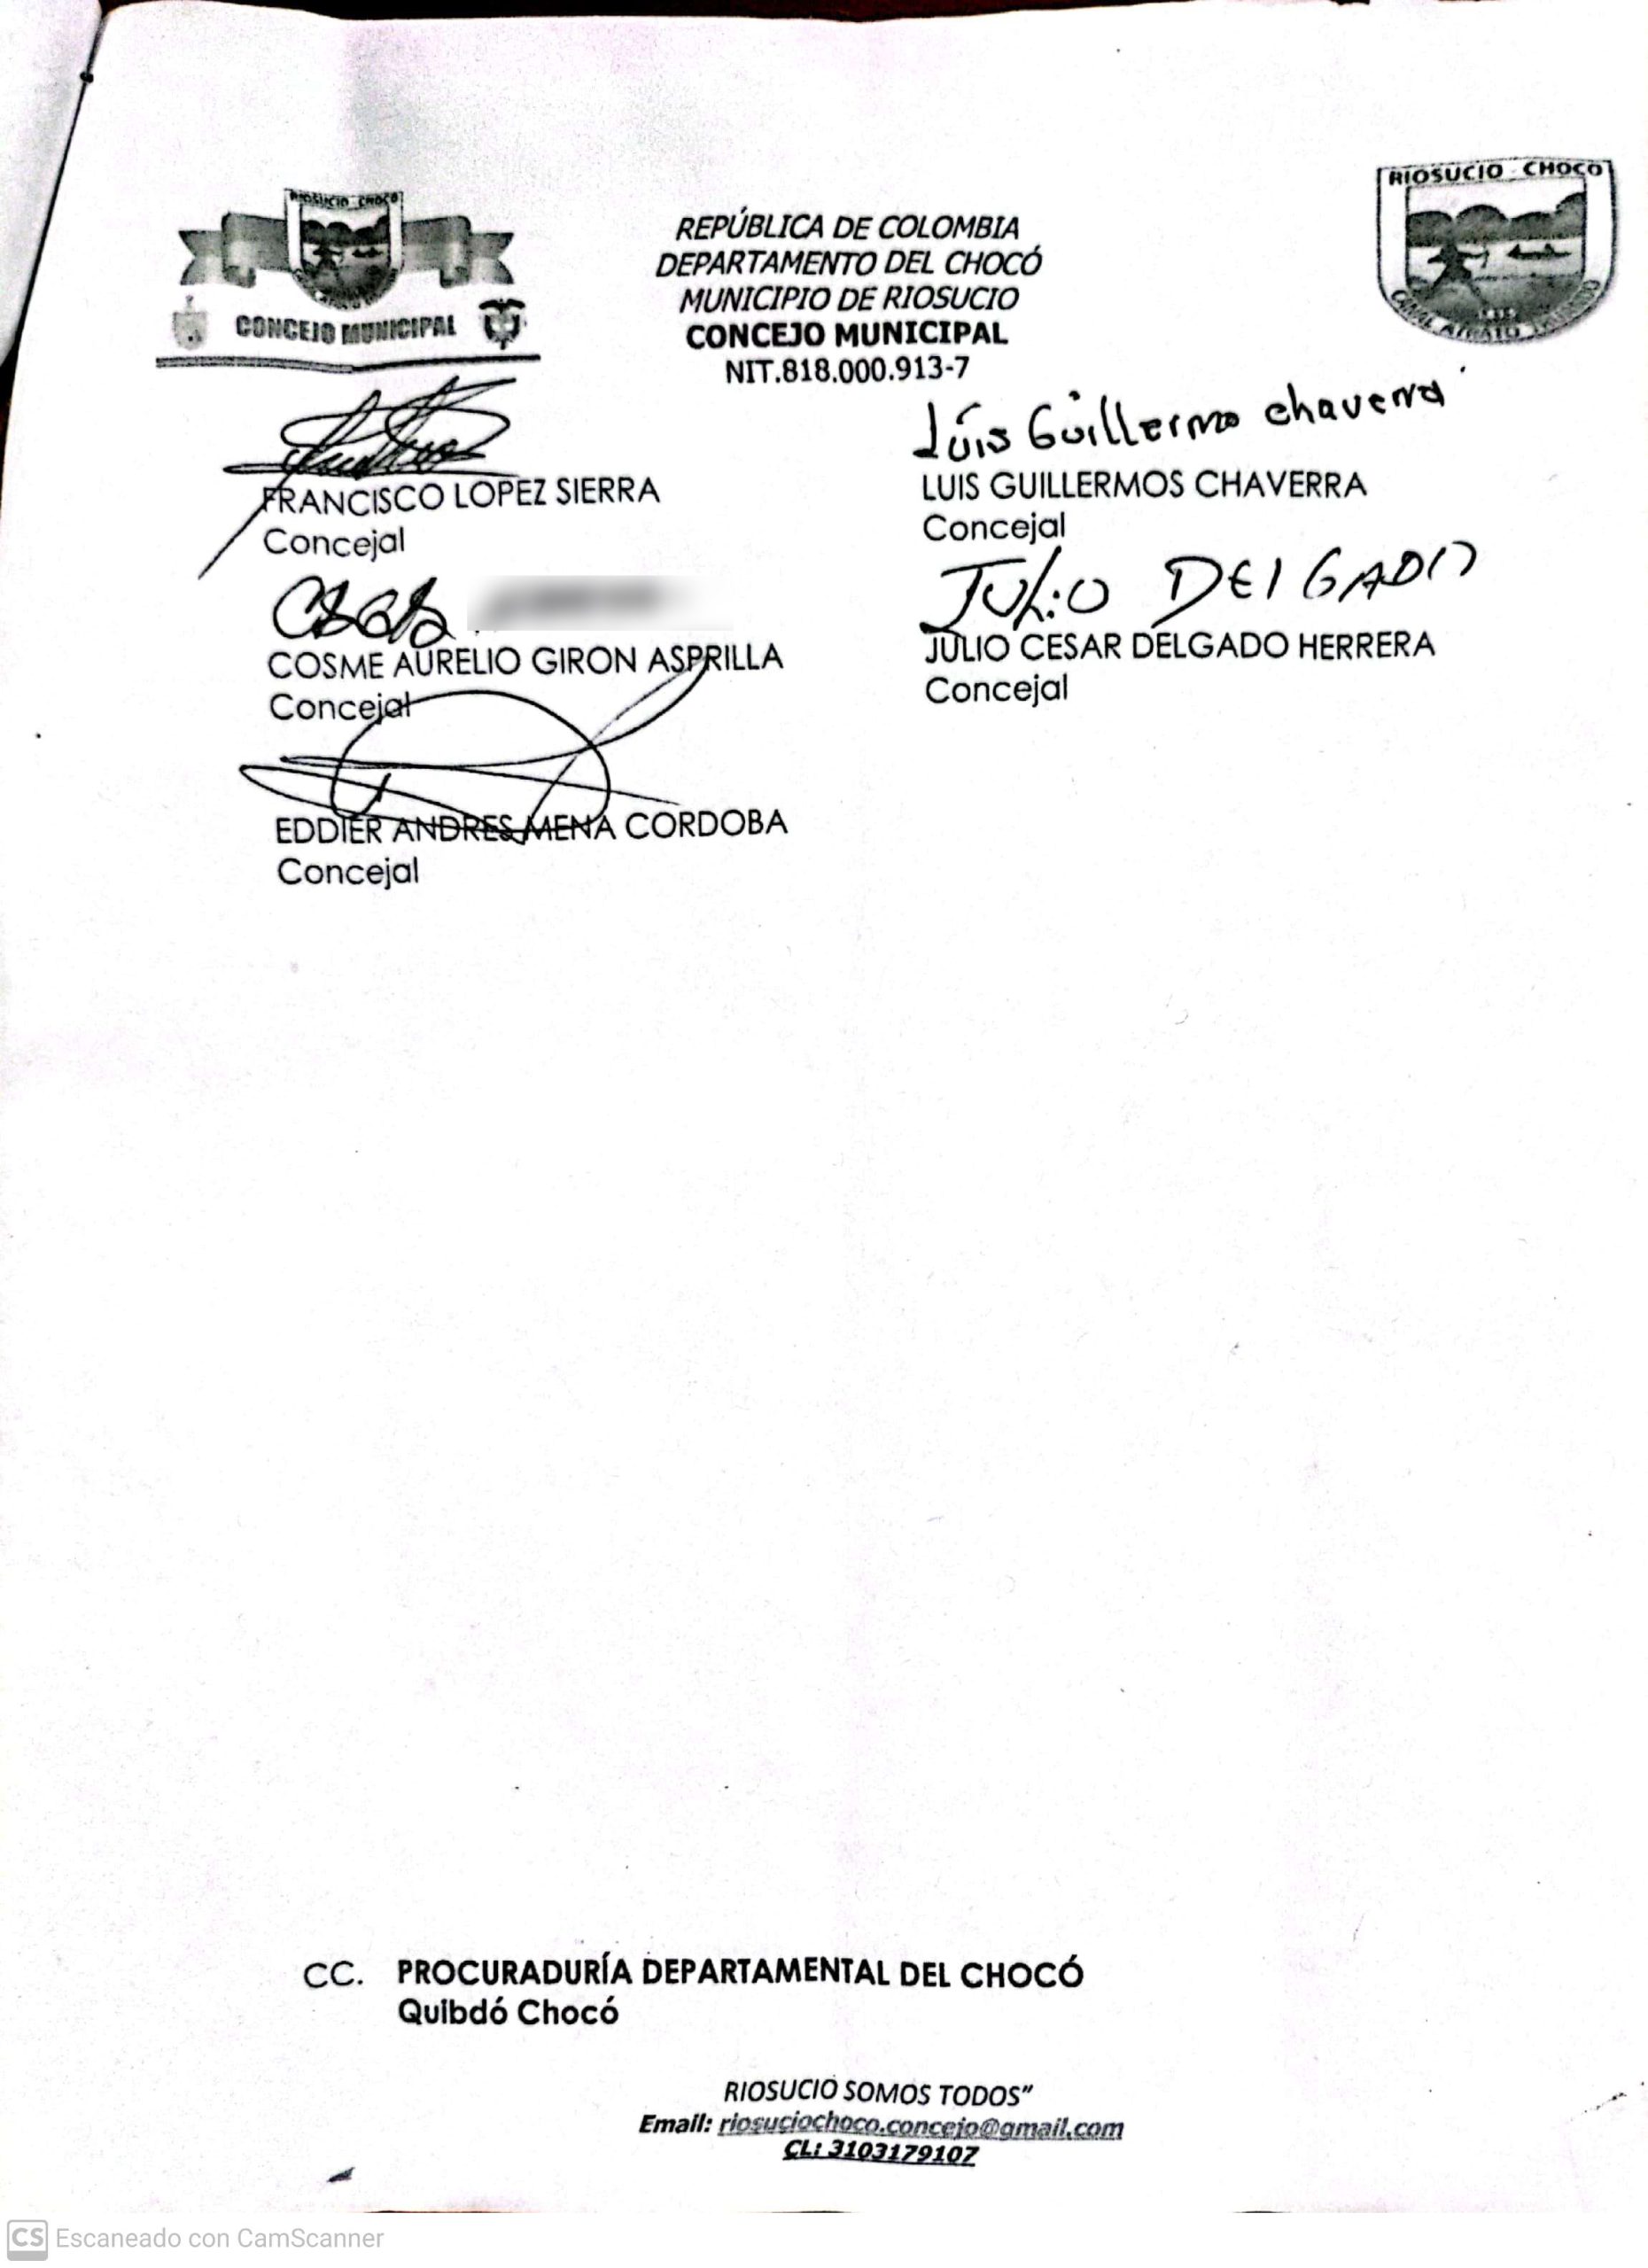 RIOSUCIO - CHOCO
CONCEJO MUNICIPAL
REPÚBLICA DE COLOMBIA
DEPARTAMENTO DEL CHOCÓ
MUNICIPIO DE RIOSUCIO
CONCEJO MUNICIPAL
NIT.818.000.913-7
RIOSUCIO - CHOCO
FRANCISCO LOPEZ SIERRA
Concejal
Lúis Guillermo chaverra
LUIS GUILLERMOS CHAVERRA
Concejal
COSME AURELIO GIRON ASPRILLA
Concejal
JULIO DELGADO
JULIO CESAR DELGADO HERRERA
Concejal
EDDIER ANDRES MENA CORDOBA
Concejal
CC. PROCURADURÍA DEPARTAMENTAL DEL CHOCÓ
Quibdó Chocó
RIOSUCIO SOMOS TODOS”
Email: riosuciochoco.concejo@gmail.com
CL: 3103179107
CS Escaneado con CamScanner